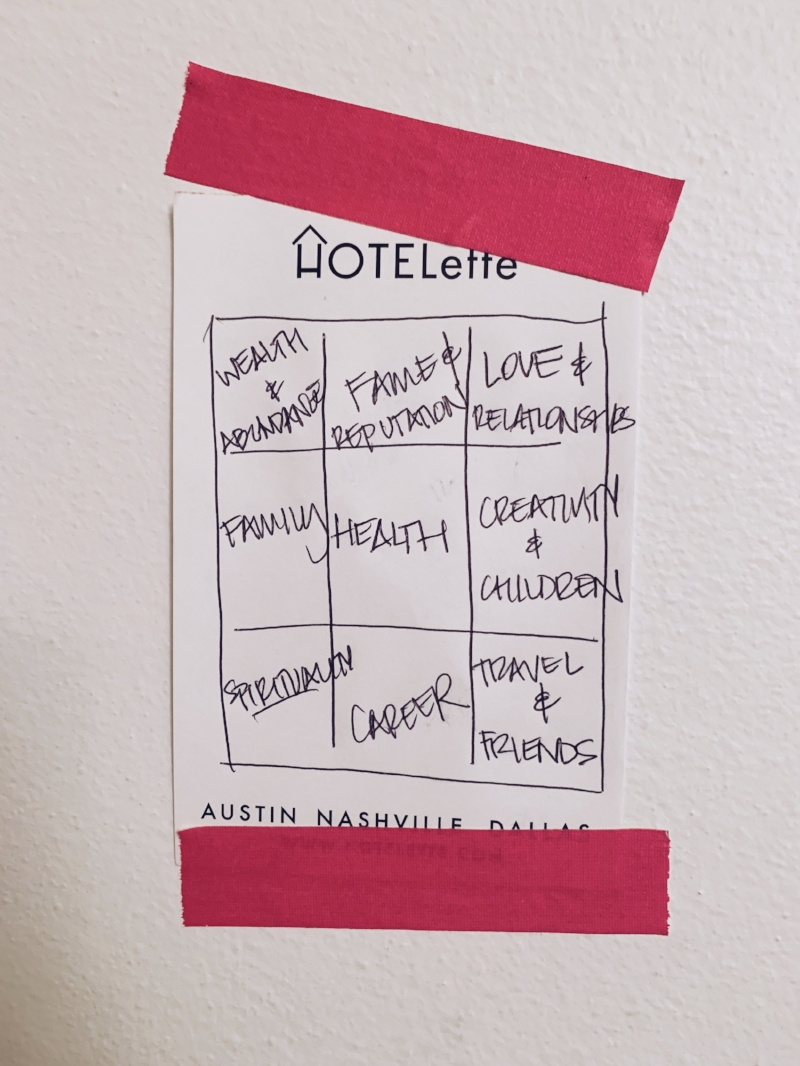 HOTELette
WEALTH
&
ABUNDANCE
FAME &
REPUTATION
LOVE &
RELATIONSHIPS
FAMILY
HEALTH
CREATIVITY
&
CHILDREN
SPIRITUALITY
CAREER
TRAVEL
&
FRIENDS
AUSTIN NASHVILLE DALLAS
WWW.HOTELETTE.COM